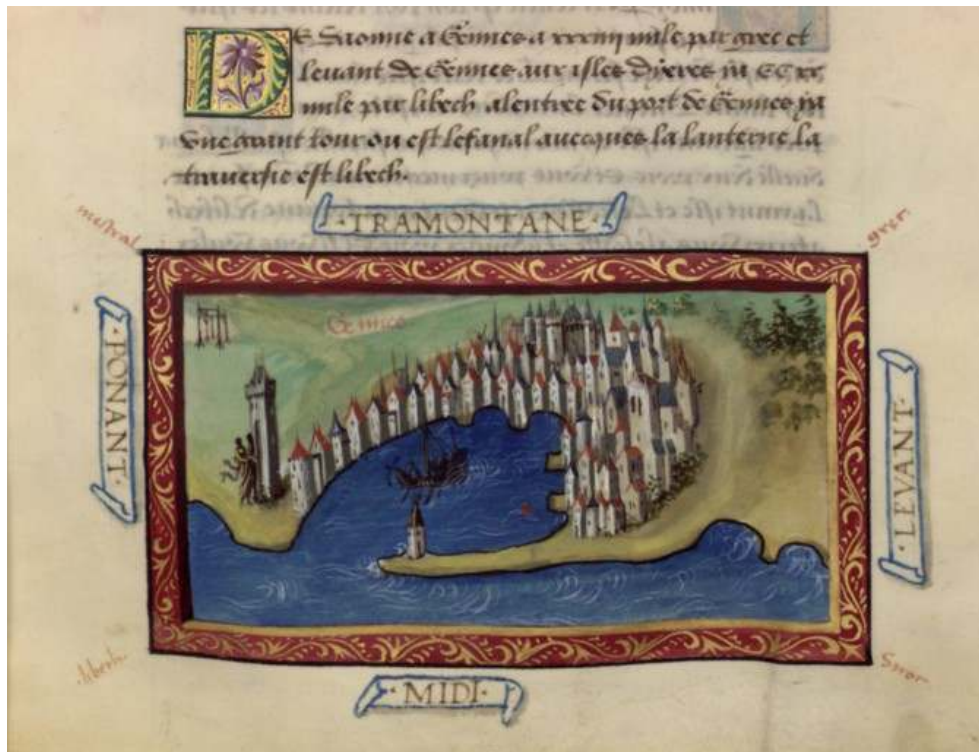 DE Saonne a Gennes a xxxiiij mile par grec et
levant de Gennes aux isles dyeres ia CC xx
mile par libech alentree du port de Gennes ya
vne grant tour ou est lefanal auecques la lanterne la
trauersie est libech.
·TRAMONTANE·
mestral
grec
Gennes
·PONANT·
·LEVANT·
libech
·MIDI·